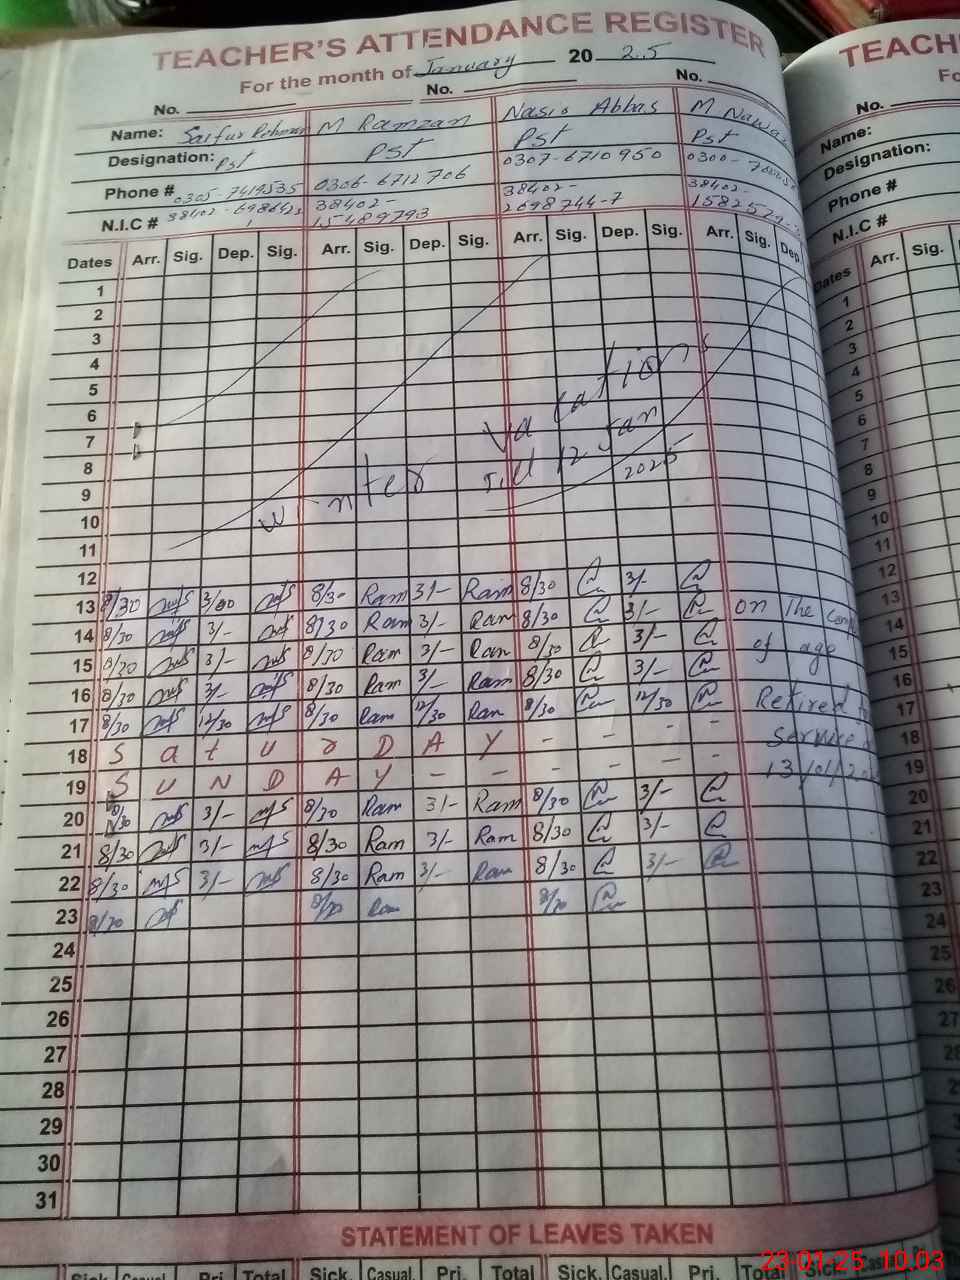 TEACHER'S ATTENDANCE REGISTER
For the month of January 20 25
No. No. No.
Name: Saifur Rehman M Ramzan Nasir Abbas M Nawaz
Designation: Pst Pst Pst Pst
Phone # 0305-7419535 0306-6712706 0307-6710950 0300-
N.I.C # 38402-6986423 38402- 38402- 38402-
1 15489793 2698744-7 1582529-
Dates Arr. Sig. Dep. Sig. Arr. Sig. Dep. Sig. Arr. Sig. Dep. Sig. Arr. Sig. Dep.
1
2
3
4
5
6
7
8
9
10
11
12
Winter Vacations
Till 12 Jan
2025
13 8/30 3/00 8/30 Ram 3/- Ram 8/30 3/-
14 8/30 3/- 8/30 Ram 3/- Ram 8/30 3/-
15 8/30 3/- 8/30 Ram 3/- Ram 8/30 3/-
16 8/30 3/- 8/30 Ram 3/- Ram 8/30 3/-
17 8/30 12/30 8/30 Ram 12/30 Ram 8/30 12/30
18 S a t u r D A Y - - - - -
19 S U N D A Y - - - - - -
20 8/30 3/- 8/30 Ram 3/- Ram 8/30 3/-
21 8/30 3/- 8/30 Ram 3/- Ram 8/30 3/-
22 8/30 3/- 8/30 Ram 3/- Ram 8/30 3/-
23 8/30 8/30 Ram 8/30
24
25
26
27
28
29
30
31
on The
of age
Retired
Service
13/01/20
STATEMENT OF LEAVES TAKEN
Sick. Casual. Pri. Total Sick. Casual. Pri. Total Sick. Casual. Pri. Total Sick.
TEACH
Fo
No.
Name:
Designation:
Phone #
N.I.C #
Dates Arr. Sig.
1
2
3
4
5
6
7
8
9
10
11
12
13
14
15
16
17
18
19
20
21
22
23
24
25
26
27
23-01-25 10:03